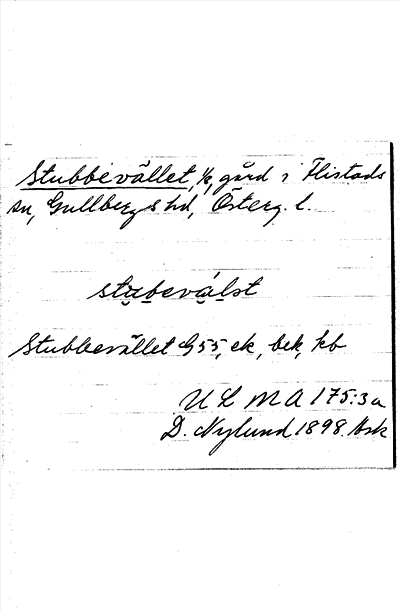 Stubbevället, 1/2, gård i Flistads
sn, Gullbergs hd, Österg. l.
stubevalst
Stubbevället G55, ek, bek, kb
ULMA 175:3a
D. Nylund 1898. Avsk